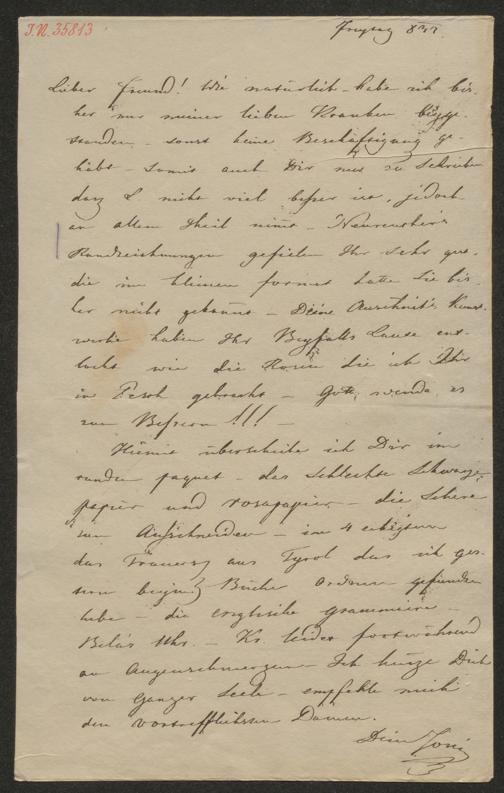 I.N. 35813
Freytag 8
Lieber Freund! Wie natürlich habe ich bis-
her nur meiner lieben Kranken beyge-
standen - sonst keine Beschäftigung ge-
habt - somit auch Dir nur zu schreiben
daß S nicht viel besser ist, jedoch
an allem Theil nimt - Neureuther's
Randzeichnungen gefielen Ihr sehr gut.
die im kleinen format hatte Sie bis-
her nicht gekannt - Deine Ausschnitt Kunst-
werke haben Ihr Beyfalls Laute ent-
lockt wie die Rosen die ich Ihr
in Pesth gebracht - Gott, wende es
zum Bessern!!! -
Hiemit überschicke ich Dir im
runden paquet - das schlechte Schwarze
papier und rosapapier - die Schere
zum Aufschneiden - im 4 eckigten
das aus Tyrol das ich ges-
tern beym Bücher ordnen gefunden
habe - die englische grammaire -
Bela's Uhr. - Kr. leidet fortwährend
an Augenschmerzen - Ich küsse Dich
von ganzer Seele - empfehle mich
den vortrefflichsten Damen.
Dein